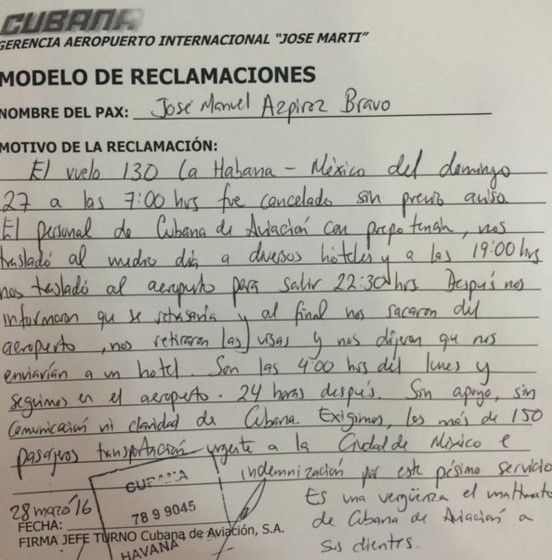 CUBANA
GERENCIA AEROPUERTO INTERNACIONAL "JOSE MARTI"
MODELO DE RECLAMACIONES
NOMBRE DEL PAX: José Manuel Azpiroz Bravo
MOTIVO DE LA RECLAMACIÓN:
El vuelo 130 La Habana - México del domingo
27 a las 7:00 hrs fue cancelado sin previo aviso.
El personal de Cubana de Aviación con prepotencia, nos
trasladó al medio día a diversos hoteles y a las 19:00 hrs
nos trasladó al aeropuerto para salir 22:30 hrs Después nos
informaron que se retrasaría y al final nos sacaron del
aeropuerto, nos retiraron las visas y nos dijeron que nos
enviarían a un hotel. Son las 4:00 hrs del lunes y
seguimos en el aeropuerto. 24 horas después. Sin apoyo, sin
comunicación ni claridad de Cubana. Exigimos, los más de 150
pasajeros transportación urgente a la Ciudad de México e
indemnización por este pésimo servicio
Es una vergüenza el maltrato
de Cubana de Aviación a
sus clientes.
CUBANA
78 9 9045
HAVANA
28 marzo '16
FECHA:
FIRMA JEFE TURNO Cubana de Aviación, S.A.